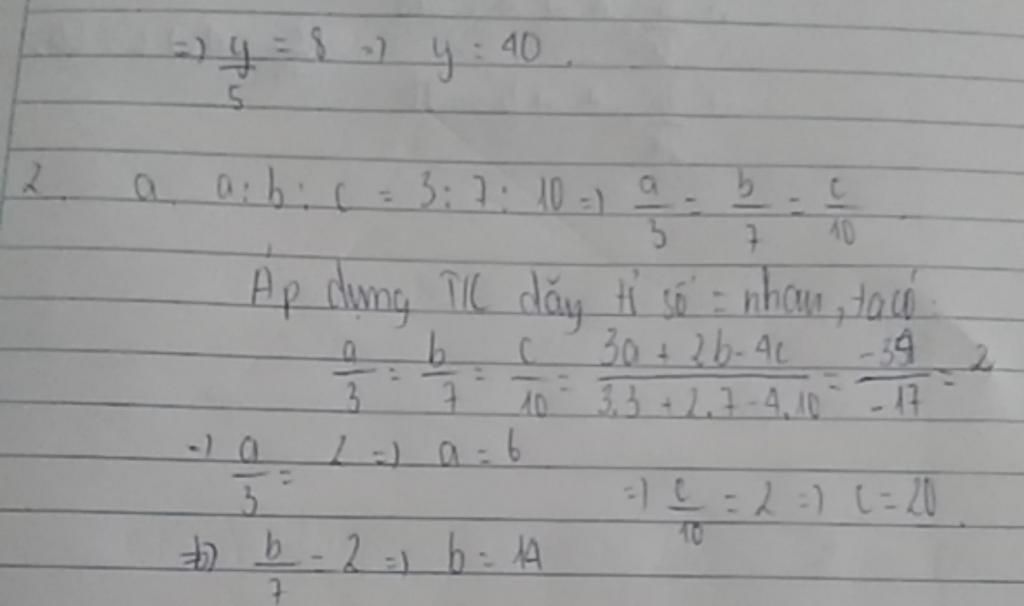 => y/5 = 8 => y = 40.
2. a. a : b : c = 3 : 7 : 10 => a/3 = b/7 = c/10
Áp dụng T/C dãy tỉ số = nhau, ta có:
a/3 = b/7 = c/10 = (3a + 2b - 4c)/(3.3 + 2.7 - 4.10) = -34/-17 = 2
=> a/3 = 2 => a = 6
=> c/10 = 2 => c = 20.
=> b/7 = 2 => b = 14